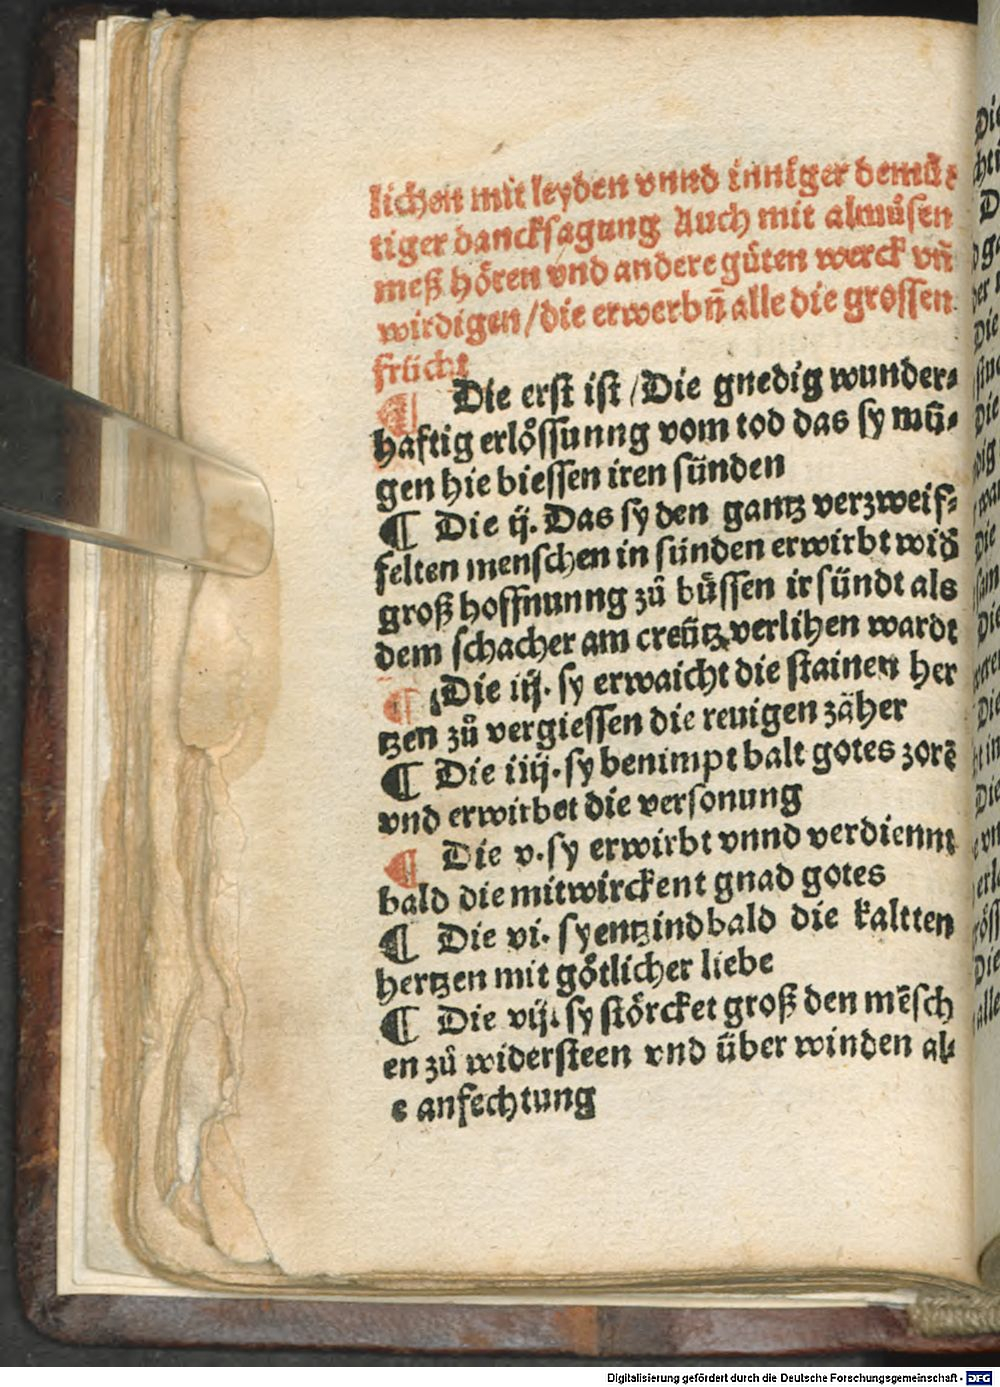 lichen mit leyden vnnd inniger demütiger dancksagung Auch mit almůsen
meß hören vnd andere gůten werck vñ
wirdigen / die erwerbñ alle die grossen
frücht
¶ Die erst ist / Die gnedig wunder⸗
haftig erlössunng vom tod das sy mü⸗
gen hie biessen iren sünden
¶ Die ij. Das sy den gantz verzweif⸗
felten menschen in sünden erwirbt wid̃
groß hoffnunng zů bůssen ir sündt als
dem schacher am creütz verlihen wardt
¶ Die iij. sy erwaicht die stainen her
tzen zů vergiessen die reuigen zäher
¶ Die iiij. sy benimpt balt gotes zorẽ
vnd erwirbet die versonung
¶ Die v. sy erwirbt vnnd verdiennt
bald die mitwirckent gnad gotes
¶ Die vi. sy entzind bald die kaltten
hertzen mit götlicher liebe
¶ Die vij. sy störcket groß den mẽsch
en zů widersteen vnd über winden al⸗
e anfechtung
Digitalisierung gefördert durch die Deutsche Forschungsgemeinschaft - DFG